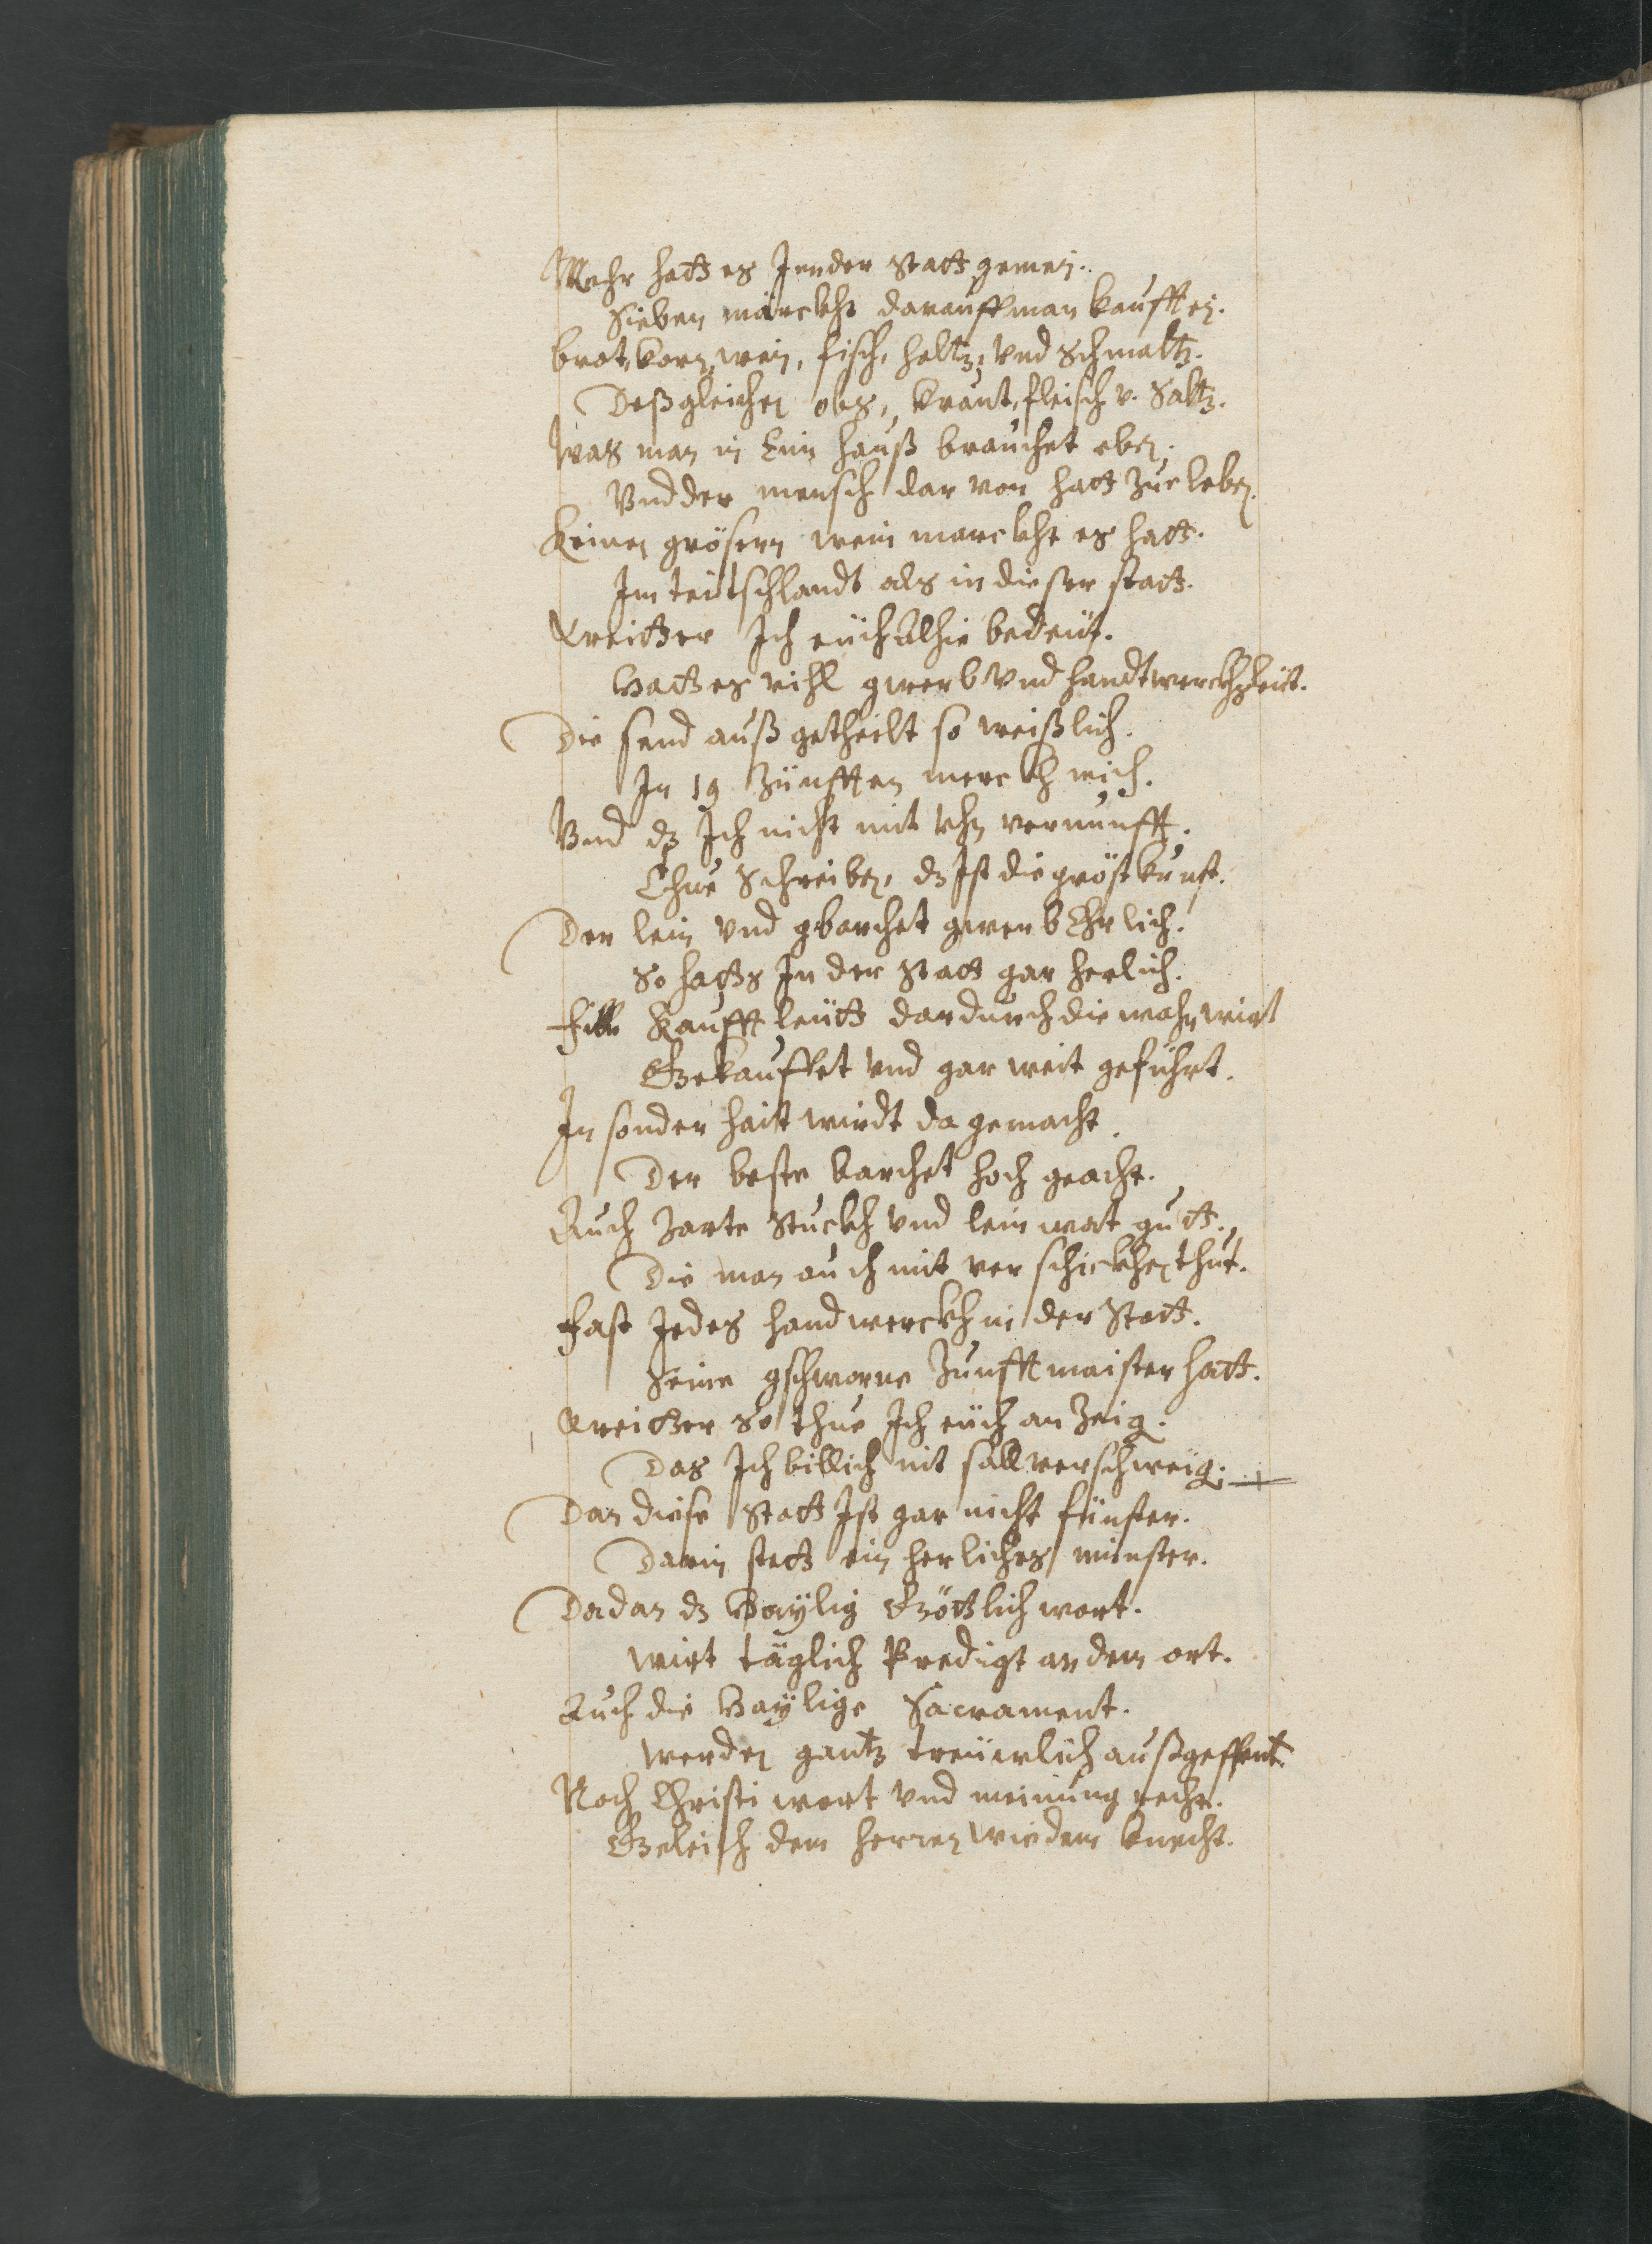 Mehr hatt es Inn der Statt gemein.
Sieben märckht darauff man kaufft ein.
brot, korn, wein, fisch, holtz, Vnd Schmaltz.
Deßgleichen obs, kraut, fleisch v. Saltz.
Was man in Eim hauß brauchet eben.
Vnd der mensch dar von hatt zue leben.
Keinen grösern wein marckht es hatt.
Im teütschlandt als in dieser statt.
Weitter Ich euch Alhie bedeüt.
Hatt es vihl gwerb Vnd handtwerckhsleüt.
Die send auß getheilt so weißlich.
In 19 Zünfften merckh mich.
Vnd dz Ich nicht mit Vhn vernunfft.
Thue Schreiben, dz Ist die gröst kunst.
Der lein Vnd gbarchet gwerb Ehrlich.
So hatts In der Statt gar herlich.
Fill Kauffleütt dardurch die wahr wirt
Gekauffet Vnd gar weit geführt.
In sonder hait wirdt da gemacht.
Der beste barchet hoch geacht.
Auch Zarte Stuckh Vnd leinwat gutt.
Die man auch mit ver schickhen thut.
Fast Jedes handwerckh in der Statt.
Seine gschworne Zunfft maister hatt.
Weitter So thue Ich euch an Zeig.
Das Ich billich nit soll verschweig.
Dan diese Statt Ist gar nicht finster.
Darin statt ein herliches minster.
Da dan dz Haÿlig Göttlich wort.
wirt täglich Predigt an dem ort.
Auch die Haÿlige Sacrament.
werden gantz treüwlich außgespent.
Noch Christi wort Vnd meinung recht.
Geleich dem herren wie dem knecht.